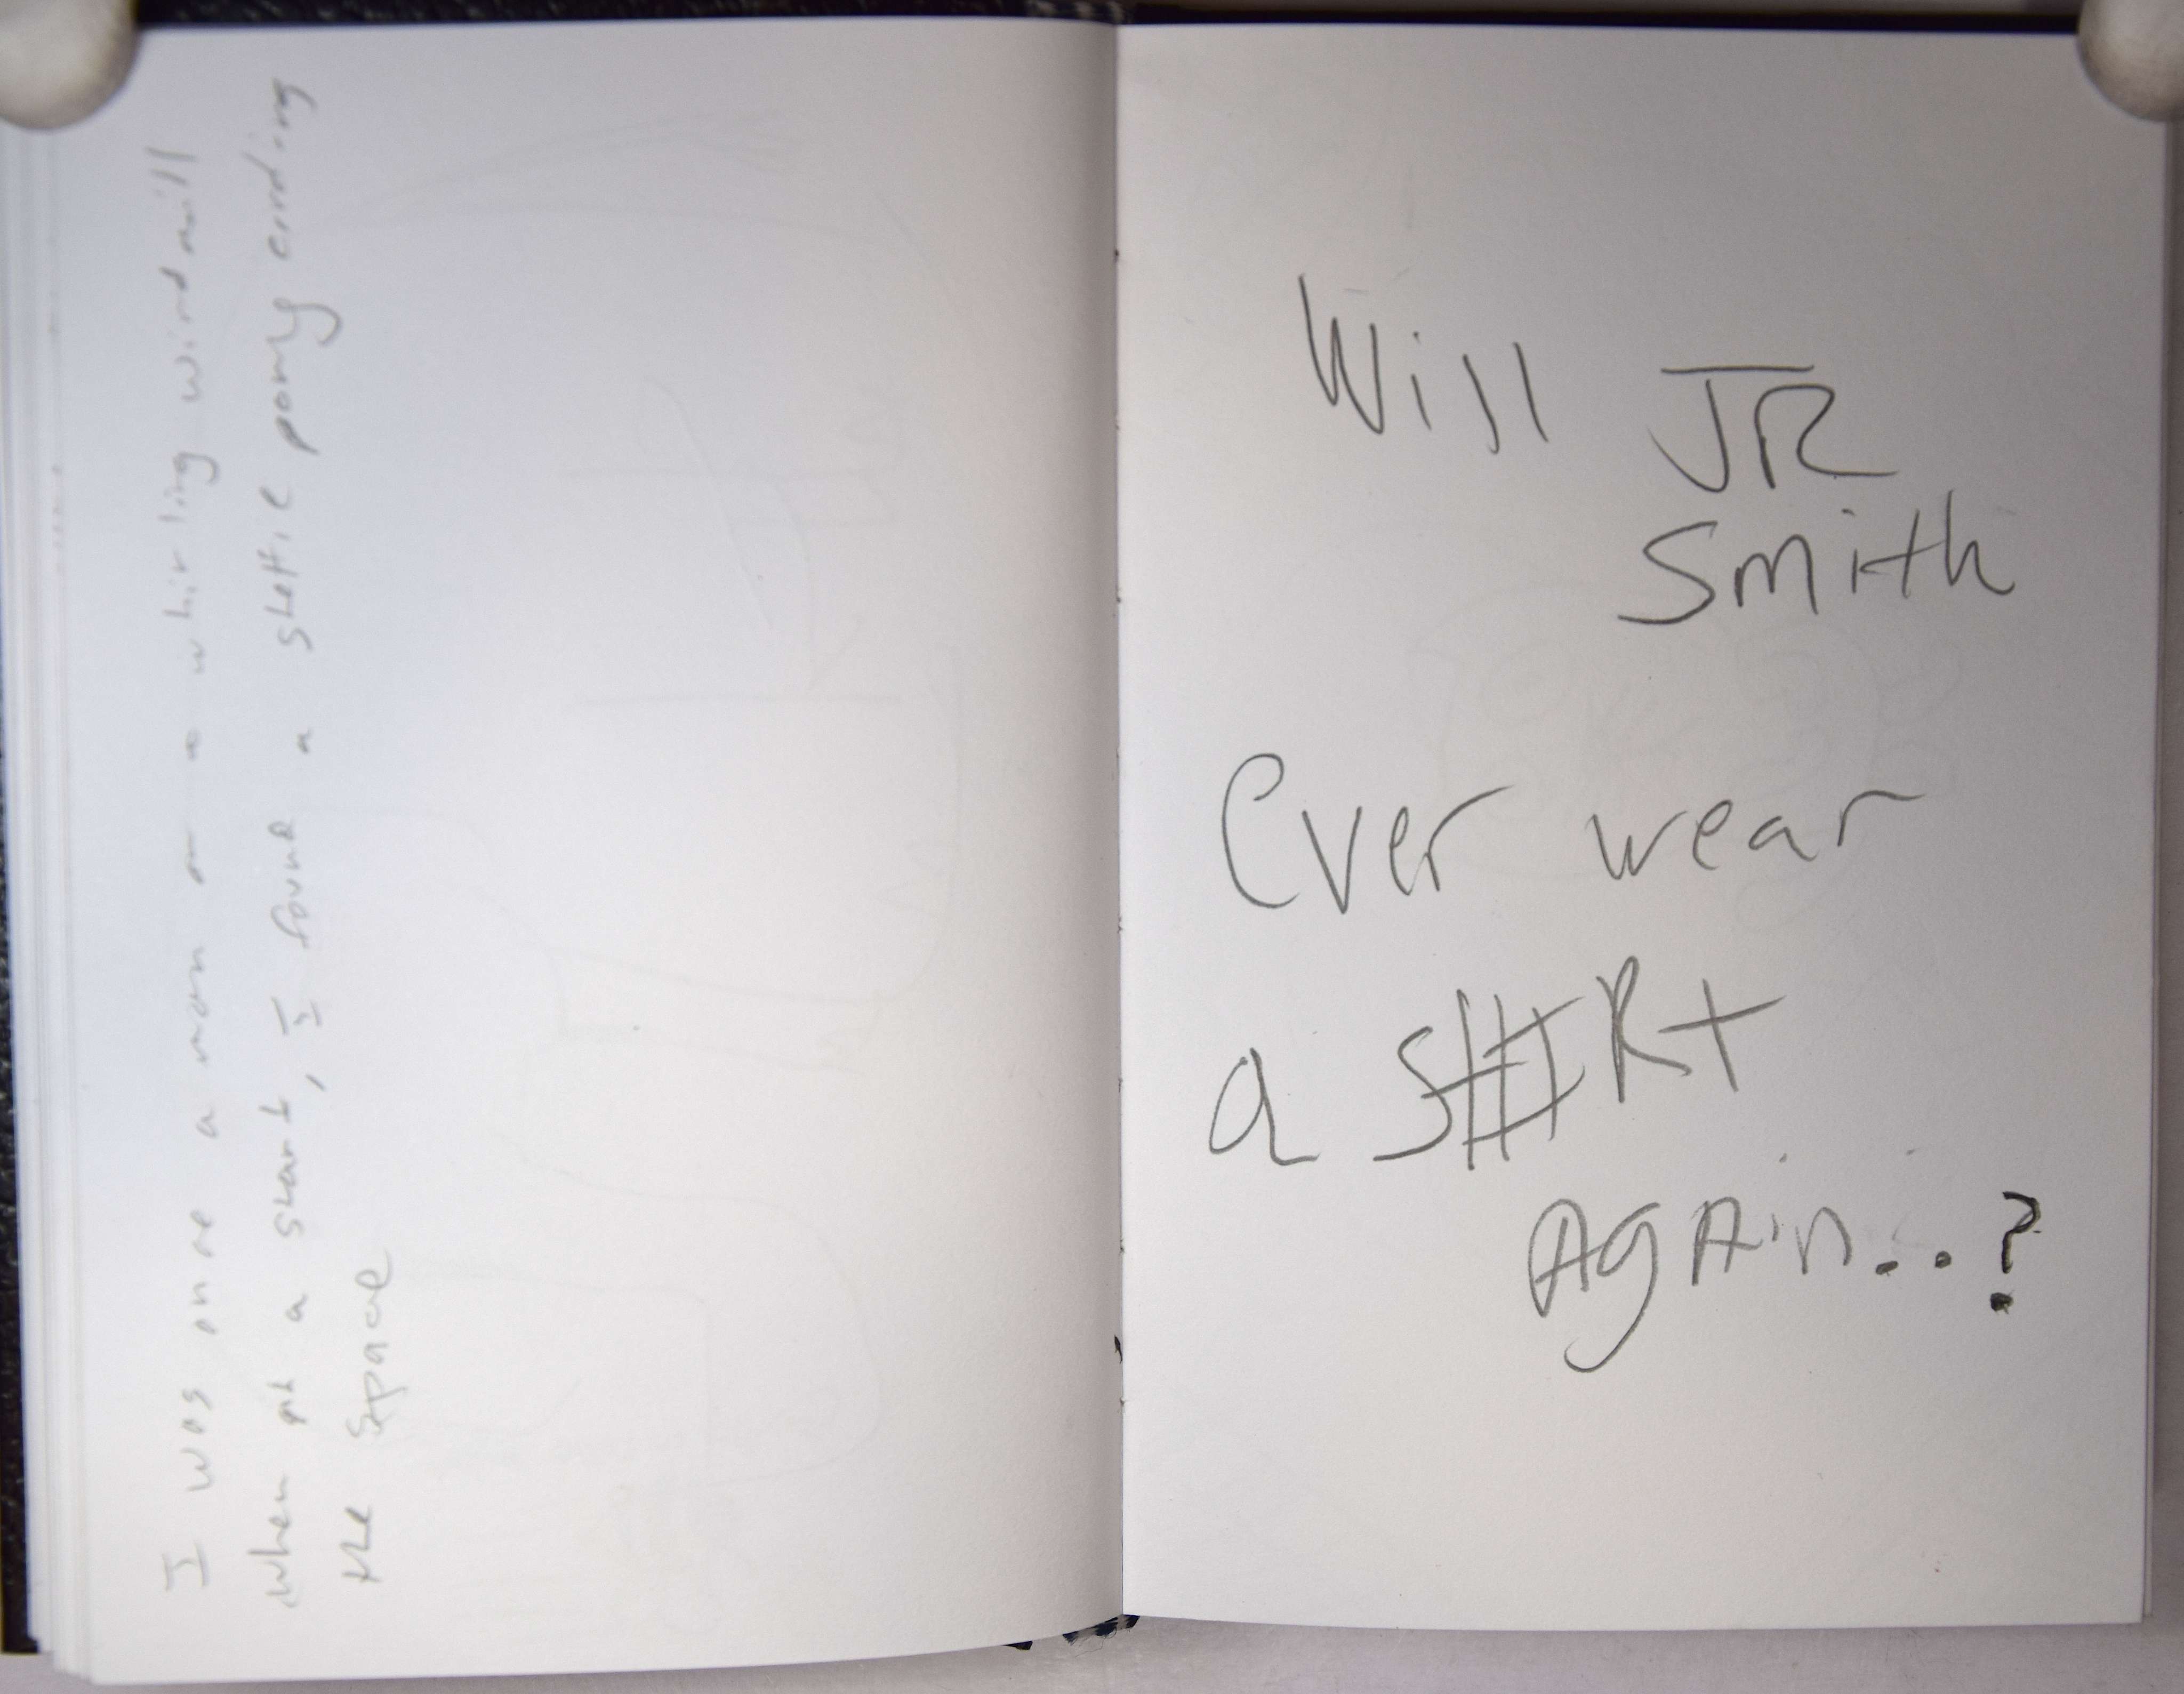 I was once a man on a whirling windmill
when at a start, I found a shettie pony ending
the space
Will JR
Smith
Ever wear
a SHIRt
AgAin..?